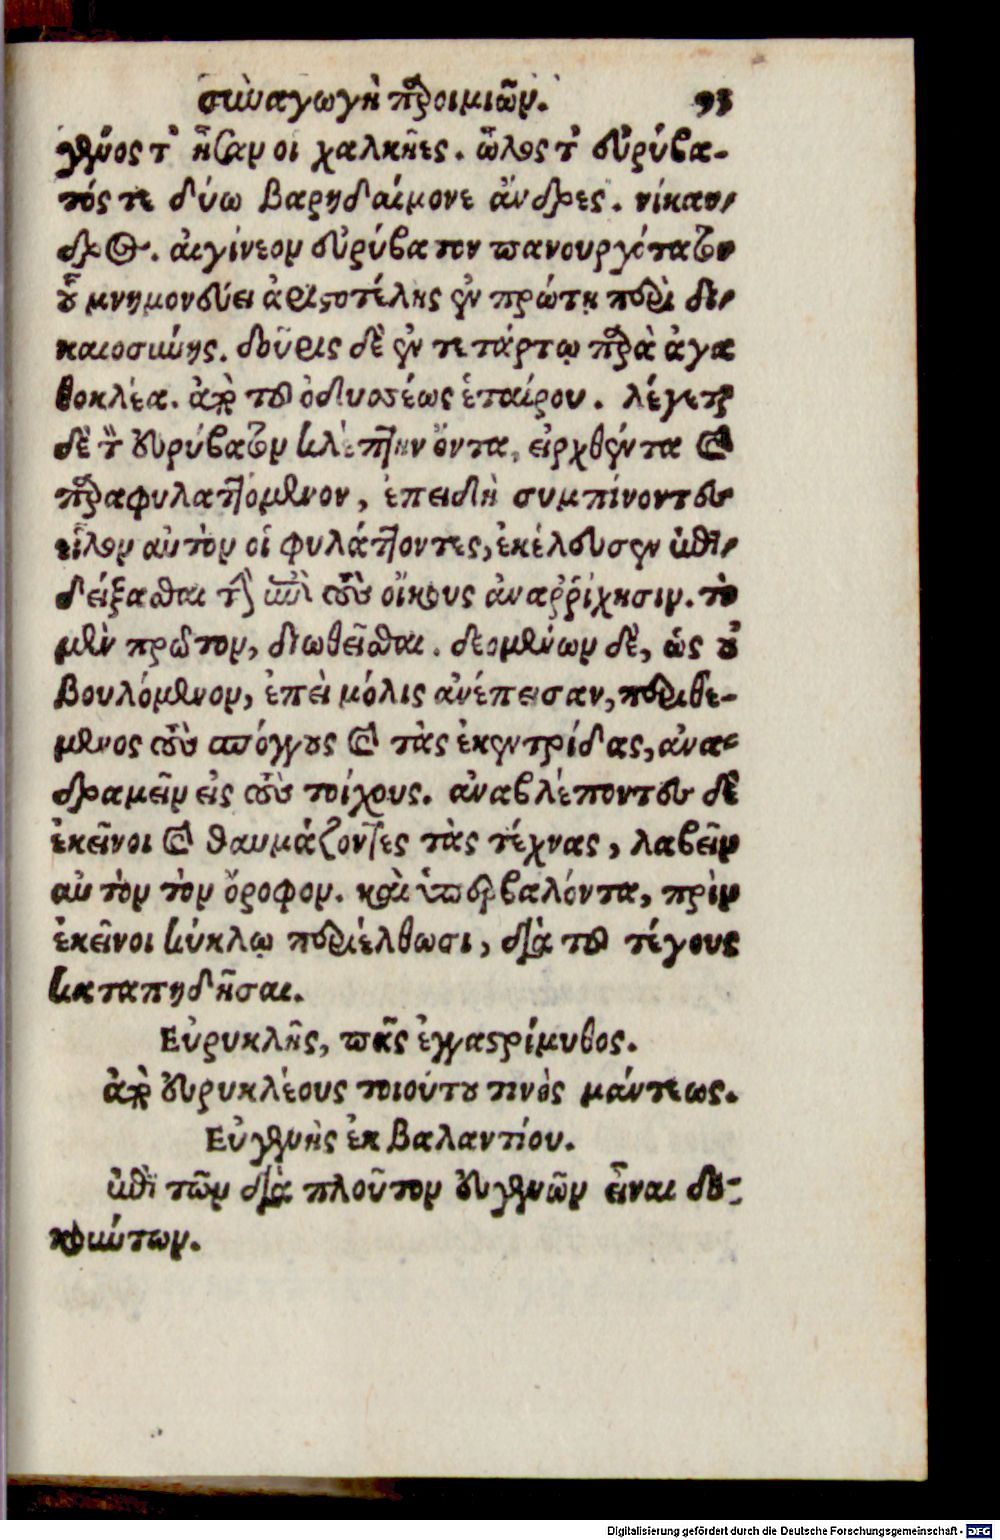 συναγωγὴ παροιμιῶν. 93
γένος τ' ἦσαν οἱ χαλκῆες. ὦλος τ' εὐρύβα-
τός τε δύω βαρυδαίμονε ἄνδρες. νίκαν-
δρος. αἰγίνεον εὐρύβατον πανουργότατον
οὗ μνημονεύει ἀριστοτέλης ἐν πρώτῃ περὶ δι-
καιοσύνης. δοῦρις δὲ ἐν τετάρτῳ παρὰ ἀγα
θοκλέα. ἀπὸ τοῦ ὀδυσσέως ἑταίρου. λέγεται
δὲ τὸν εὐρύβατον κλέπτην ὄντα, εἰρχθέντα καὶ
παραφυλαττόμενον, ἐπειδὴ συμπίνοντες
εἶλον αὐτὸν οἱ φυλάττοντες, ἐκέλευσεν ἐπι-
δείξασθαι τὴν ἐπὶ τοὺς οἴκους ἀναῤῥίχησιν. τὸ
μὲν πρῶτον, διωθεῖσθαι. δεομένων δὲ, ὡς οὐ
βουλόμενον, ἐπεὶ μόλις ἀνέπεισαν, περιθέ-
μενος τοὺς σπόγγους καὶ τὰς ἐκεντρίδας, ἀνα-
δραμεῖν εἰς τοὺς τοίχους. ἀναβλέποντες δὲ
ἐκεῖνοι καὶ θαυμάζοντες τὰς τέχνας, λαβεῖν
αὐτὸν τὸν ὄροφον. καὶ ὑπερβαλόντα, πρὶν
ἐκεῖνοι κύκλῳ περιέλθωσι, διὰ τοῦ τέγους
καταπηδῆσαι.
Εὐρυκλῆς, πᾶς ἐγγαστρίμυθος.
ἀπὸ εὐρυκλέους τοιούτου τινὸς μάντεως.
Εὐγενὴς ἐκ βαλαντίου.
ἐπὶ τῶν διὰ πλοῦτον εὐγενῶν εἶναι δο-
κούντων.
Digitalisierung gefördert durch die Deutsche Forschungsgemeinschaft - DFG